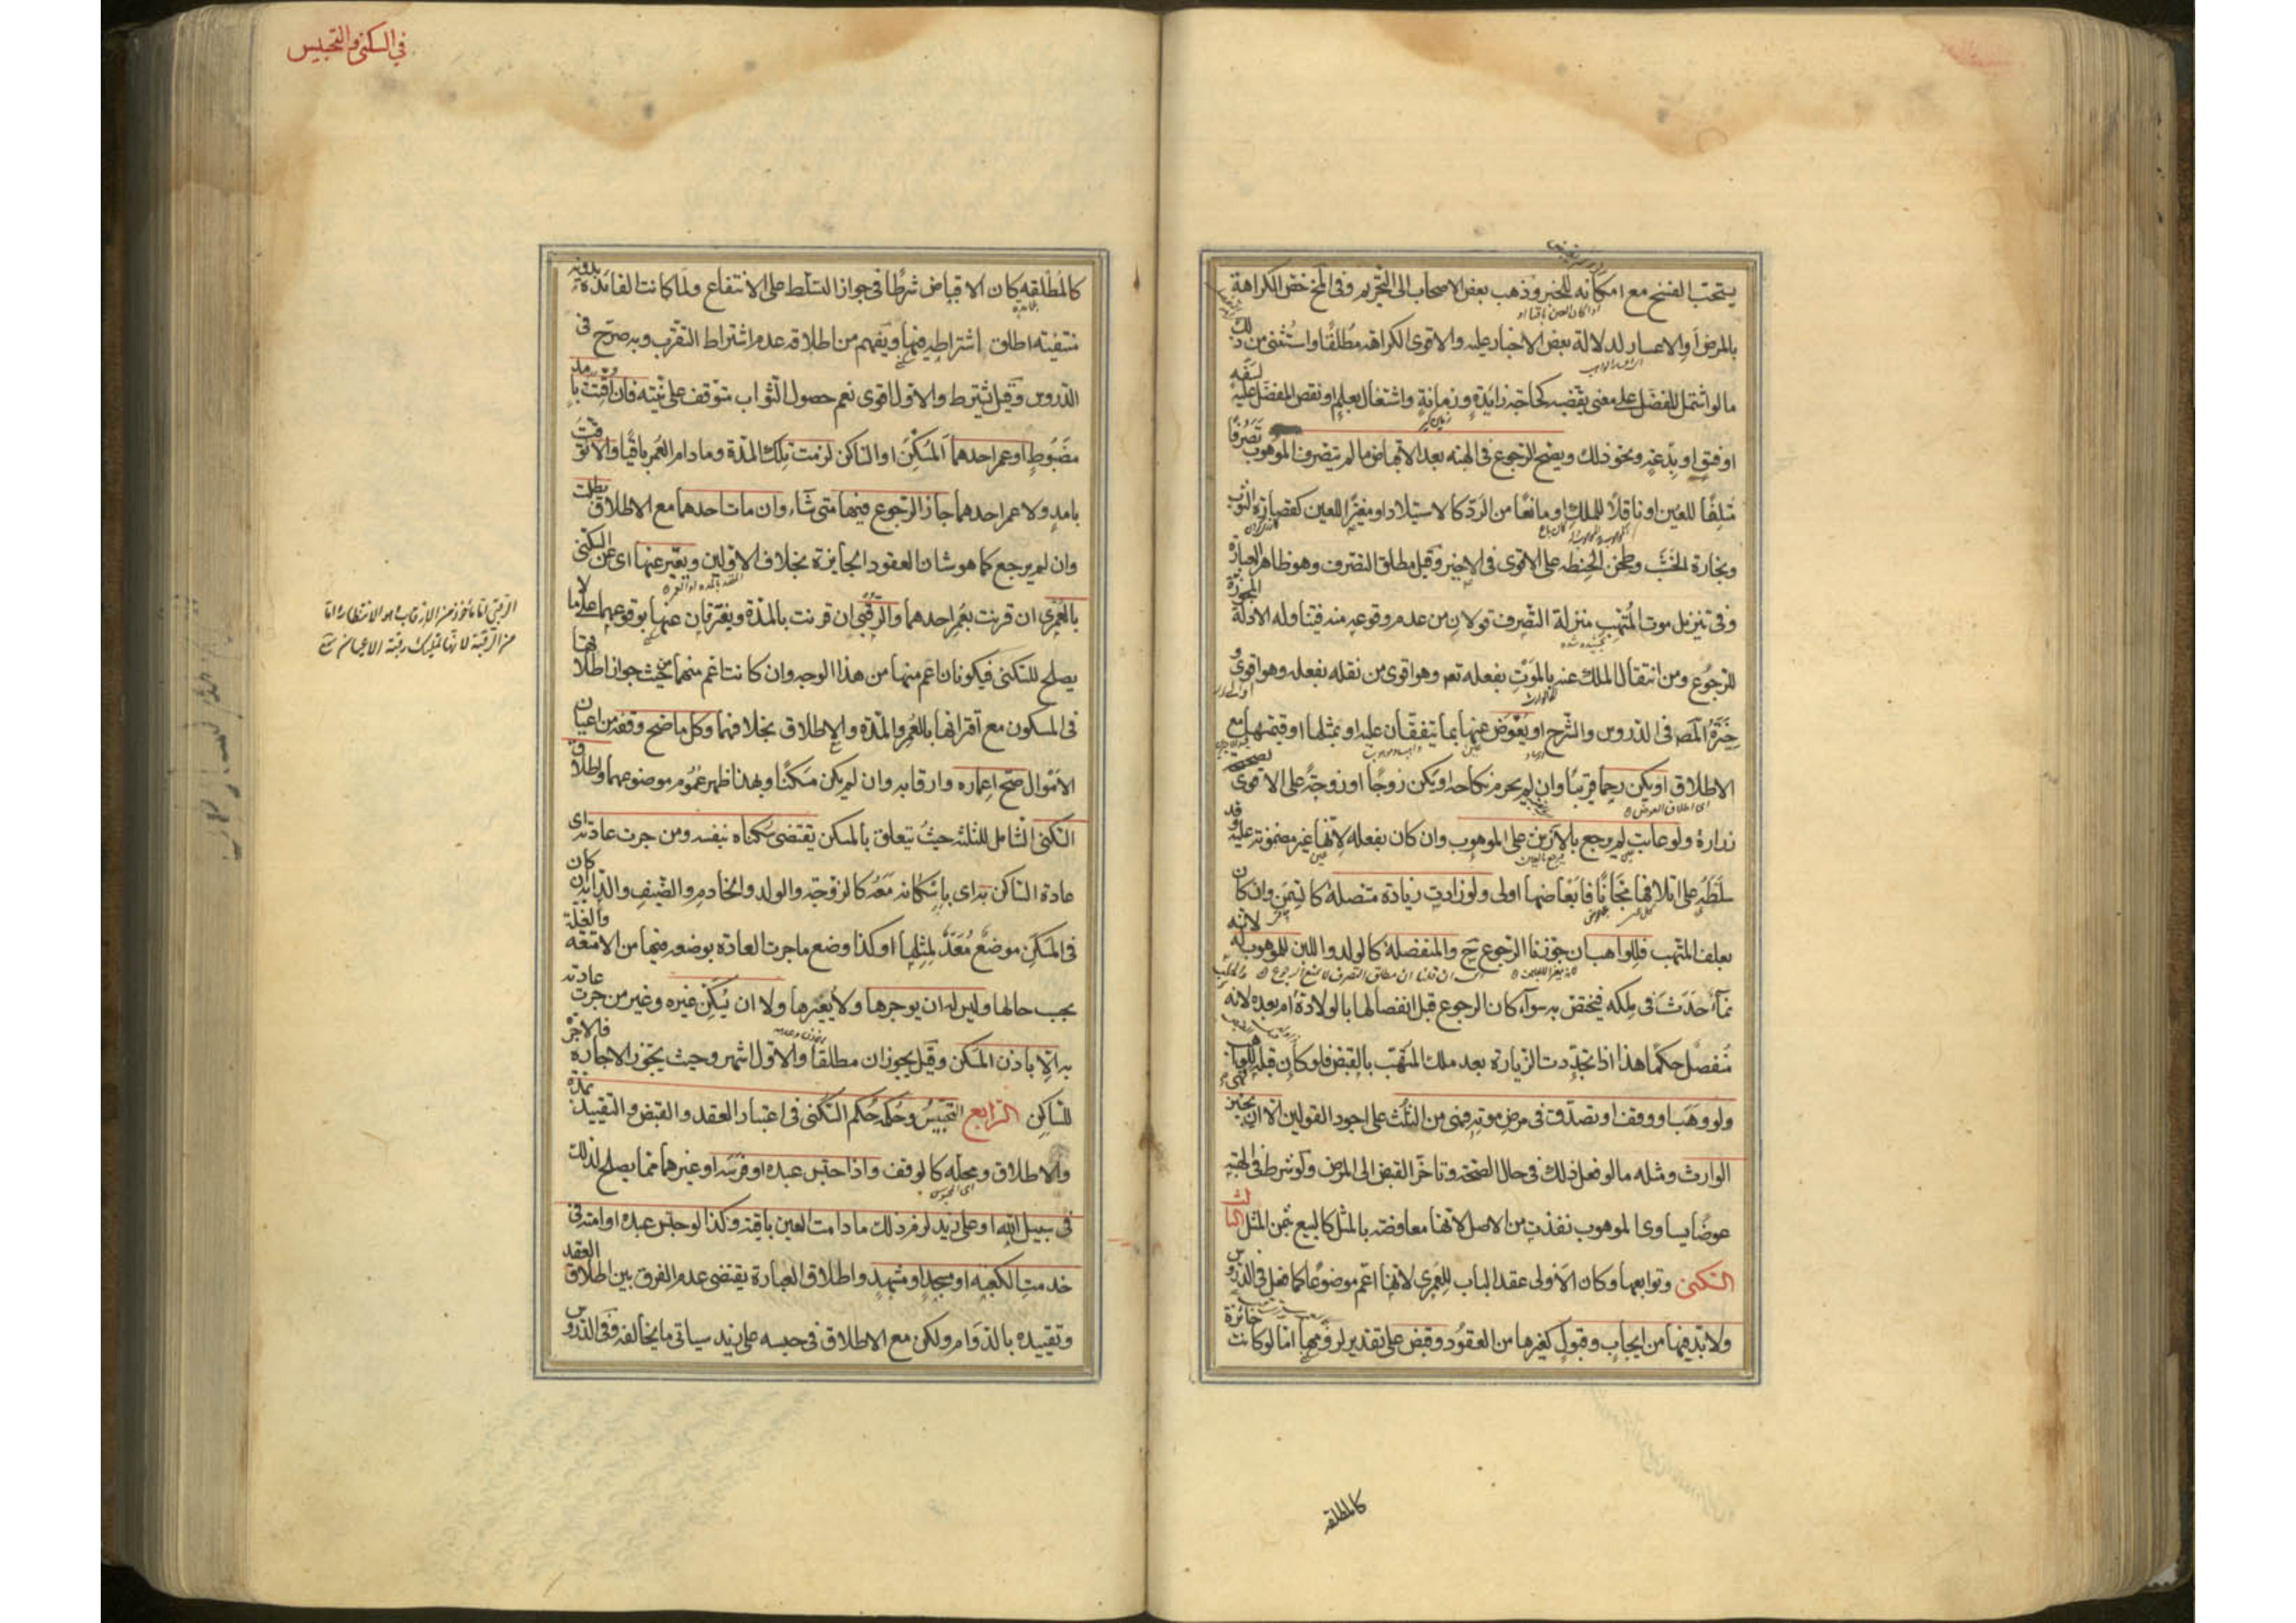 يستحب الفسخ مع امكانه للخبر وذهب بعض الاصحاب الى التحريم وفى لخ خص الكراهة
بالمرض او الاعسار لدلالة بعض الاخبار عليه والاقوى الكراهه مطلقا واستثنى من ذلك
ما لو اشتمل المفضل على معنى يقتضيه كحاجة زايدة وزمانة واشتغال بعلم او نقص المفضل عليه بسفه
او فسق او بدعة ونحو ذلك ويصح الرجوع فى الهبة بعد الاقباض ما لم يتصرف الموهوب تصرفا
متلفا للعين او ناقلا للملك او مانعا من الرد كالاستيلاد او مغيرا للعين كقصارة الثوب
ونجارة الخشب وطحن الحنطه على الاقوى فى الاخير وقيل مطلق التصرف وهو ظاهر العبارة
وفى تنزيل موت المتهب منزلة التصرف قولان من عدم وقوعه منه فيتناوله الادلة المجوزة
للرجوع ومن انتقال الملك عنه بالموت بفعله تعم وهو اقوى من نقله بفعله وهو اقوى و
خيرة المصه فى الدروس والشرح او يعوض عنها بما يتفقان عليه او بمثلها او قيمتها مع
الاطلاق او يكن رحما قريبا وان لم يحرم نكاحه او يكن زوجا او زوجة على الاقوى لصحيحة
زرارة ولو عابت لم يرجع بالارش على الموهوب وان كان بفعله لانها غير مضمونة عليه وقد
سلطه على اتلافها مجانا فابعاضها اولى ولو زادت زيادة متصلة كالسمن وان كان
بعلف المتهب فللواهب ان جوزنا الرجوع ح والمنفصلة كالولد واللبن للموهوب له لانه
نماء حدث فى ملكه فيختص به سواء كان الرجوع قبل انفصالها بالولادة ام بعده لانه
منفصل حكما هذا اذا تجددت الزيادة بعد ملك المتهب بالقبض فلو كان قبله فهى للواهب
ولو وهب او وقف او تصدق فى مرض موته فهى من الثلث على اجود القولين الا ان يجيز
الوارث ومثله ما لو فعل ذلك فى حال الصحة وتاخر القبض الى المرض ولو شرط فى الهبة
عوضا يساوى الموهوب نفذت من الاصل لانها معاوضة بالمثل كالبيع بثمن المثل الثالث
السكنى وتوابعها وكان الاولى عقد الباب للعمرى لانها اعم موضوعا كما فعل فى الدروس
ولا بد فيها من ايجاب وقبول كغيرها من العقود وقبض على تقدير لزومها اما لو كانت جائزة
كالمطلقه
فى السكنى و التحبيس
كالمطلقه كان الاقباض شرطا فى جواز التسلط على الانتفاع ولما كانت الفائدة بدونه
منتفية اطلق اشتراطه فيها ويفهم من اطلاقه عدم اشتراط التقرب وبه صرح فى
الدروس وقيل يشترط والاول اقوى نعم حصول الثواب متوقف على نيته فان اقتت بامد
مضبوط او عمر احدهما المسكن او الساكن لزمت تلك المدة وما دام العمر باقيا والا توقت
بامد ولا عمر احدهما جاز الرجوع فيها متى شاء وان مات احدهما مع الاطلاق بطلت
وان لم يرجع كما هو شان العقود الجايزة بخلاف الاولين ويعبر عنها اى عن السكنى
بالعمرى ان قرنت بعمر احدهما والرقبى ان قرنت بالمدة ويفترقان عنها بوقوعهما على ما لا
يصلح للسكنى فيكونان اعم منها من هذا الوجه وان كانت اعم منهما من حيث جواز اطلاقها
فى المسكون مع اقترانها بالعمر والمدة والاطلاق بخلافهما وكل ما صح وقفه من اعيان
الاموال صح اعماره وارقابه وان لم يكن مسكنا وبهذا ظهر عموم موضوعهما واطلاق
السكنى الشامل للثلثة حيث يتعلق بالمسكن يقتضى سكناه بنفسه ومن جرت عادته اى
عادة الساكن به اى باسكانه معه كالزوجة والولد والخادم والضيف والدابة ان كان
فى المسكن موضع معد لمثلها او كذا وضع ما جرت العادة بوضعه فيها من الامتعه والغلة
بحسب حالها وليس له ان يوجرها ولا يعيرها ولا ان يسكن غيره وغير من جرت عادته
به الا باذن المسكن وقيل يجوزان مطلقا والاول اشهر وحيث يجوز الاجارة فالاجرة
للساكن الرابع التحبيس وحكمه حكم السكنى فى اعتبار العقد والقبض والتقييد بمدة
والاطلاق ومحله كالوقف واذا حبس عبده او فرسه او غيرهما مما يصلح لذلك
فى سبيل الله او على زيد لزم ذلك ما دامت العين باقية وكذا لو حبس عبده او امته فى
خدمة الكعبة او مسجد او مشهد واطلاق العبارة يقتضى عدم الفرق بين اطلاق العقد
وتقييده بالدوام ولكن مع الاطلاق فى حبسه على زيد سياتى ما يخالفه وفى الدروس
الرقبى اما ماخوذ من الارقاب وهو الانتظار واما
من الرقبة لانها تمليك رقبة الاعيان